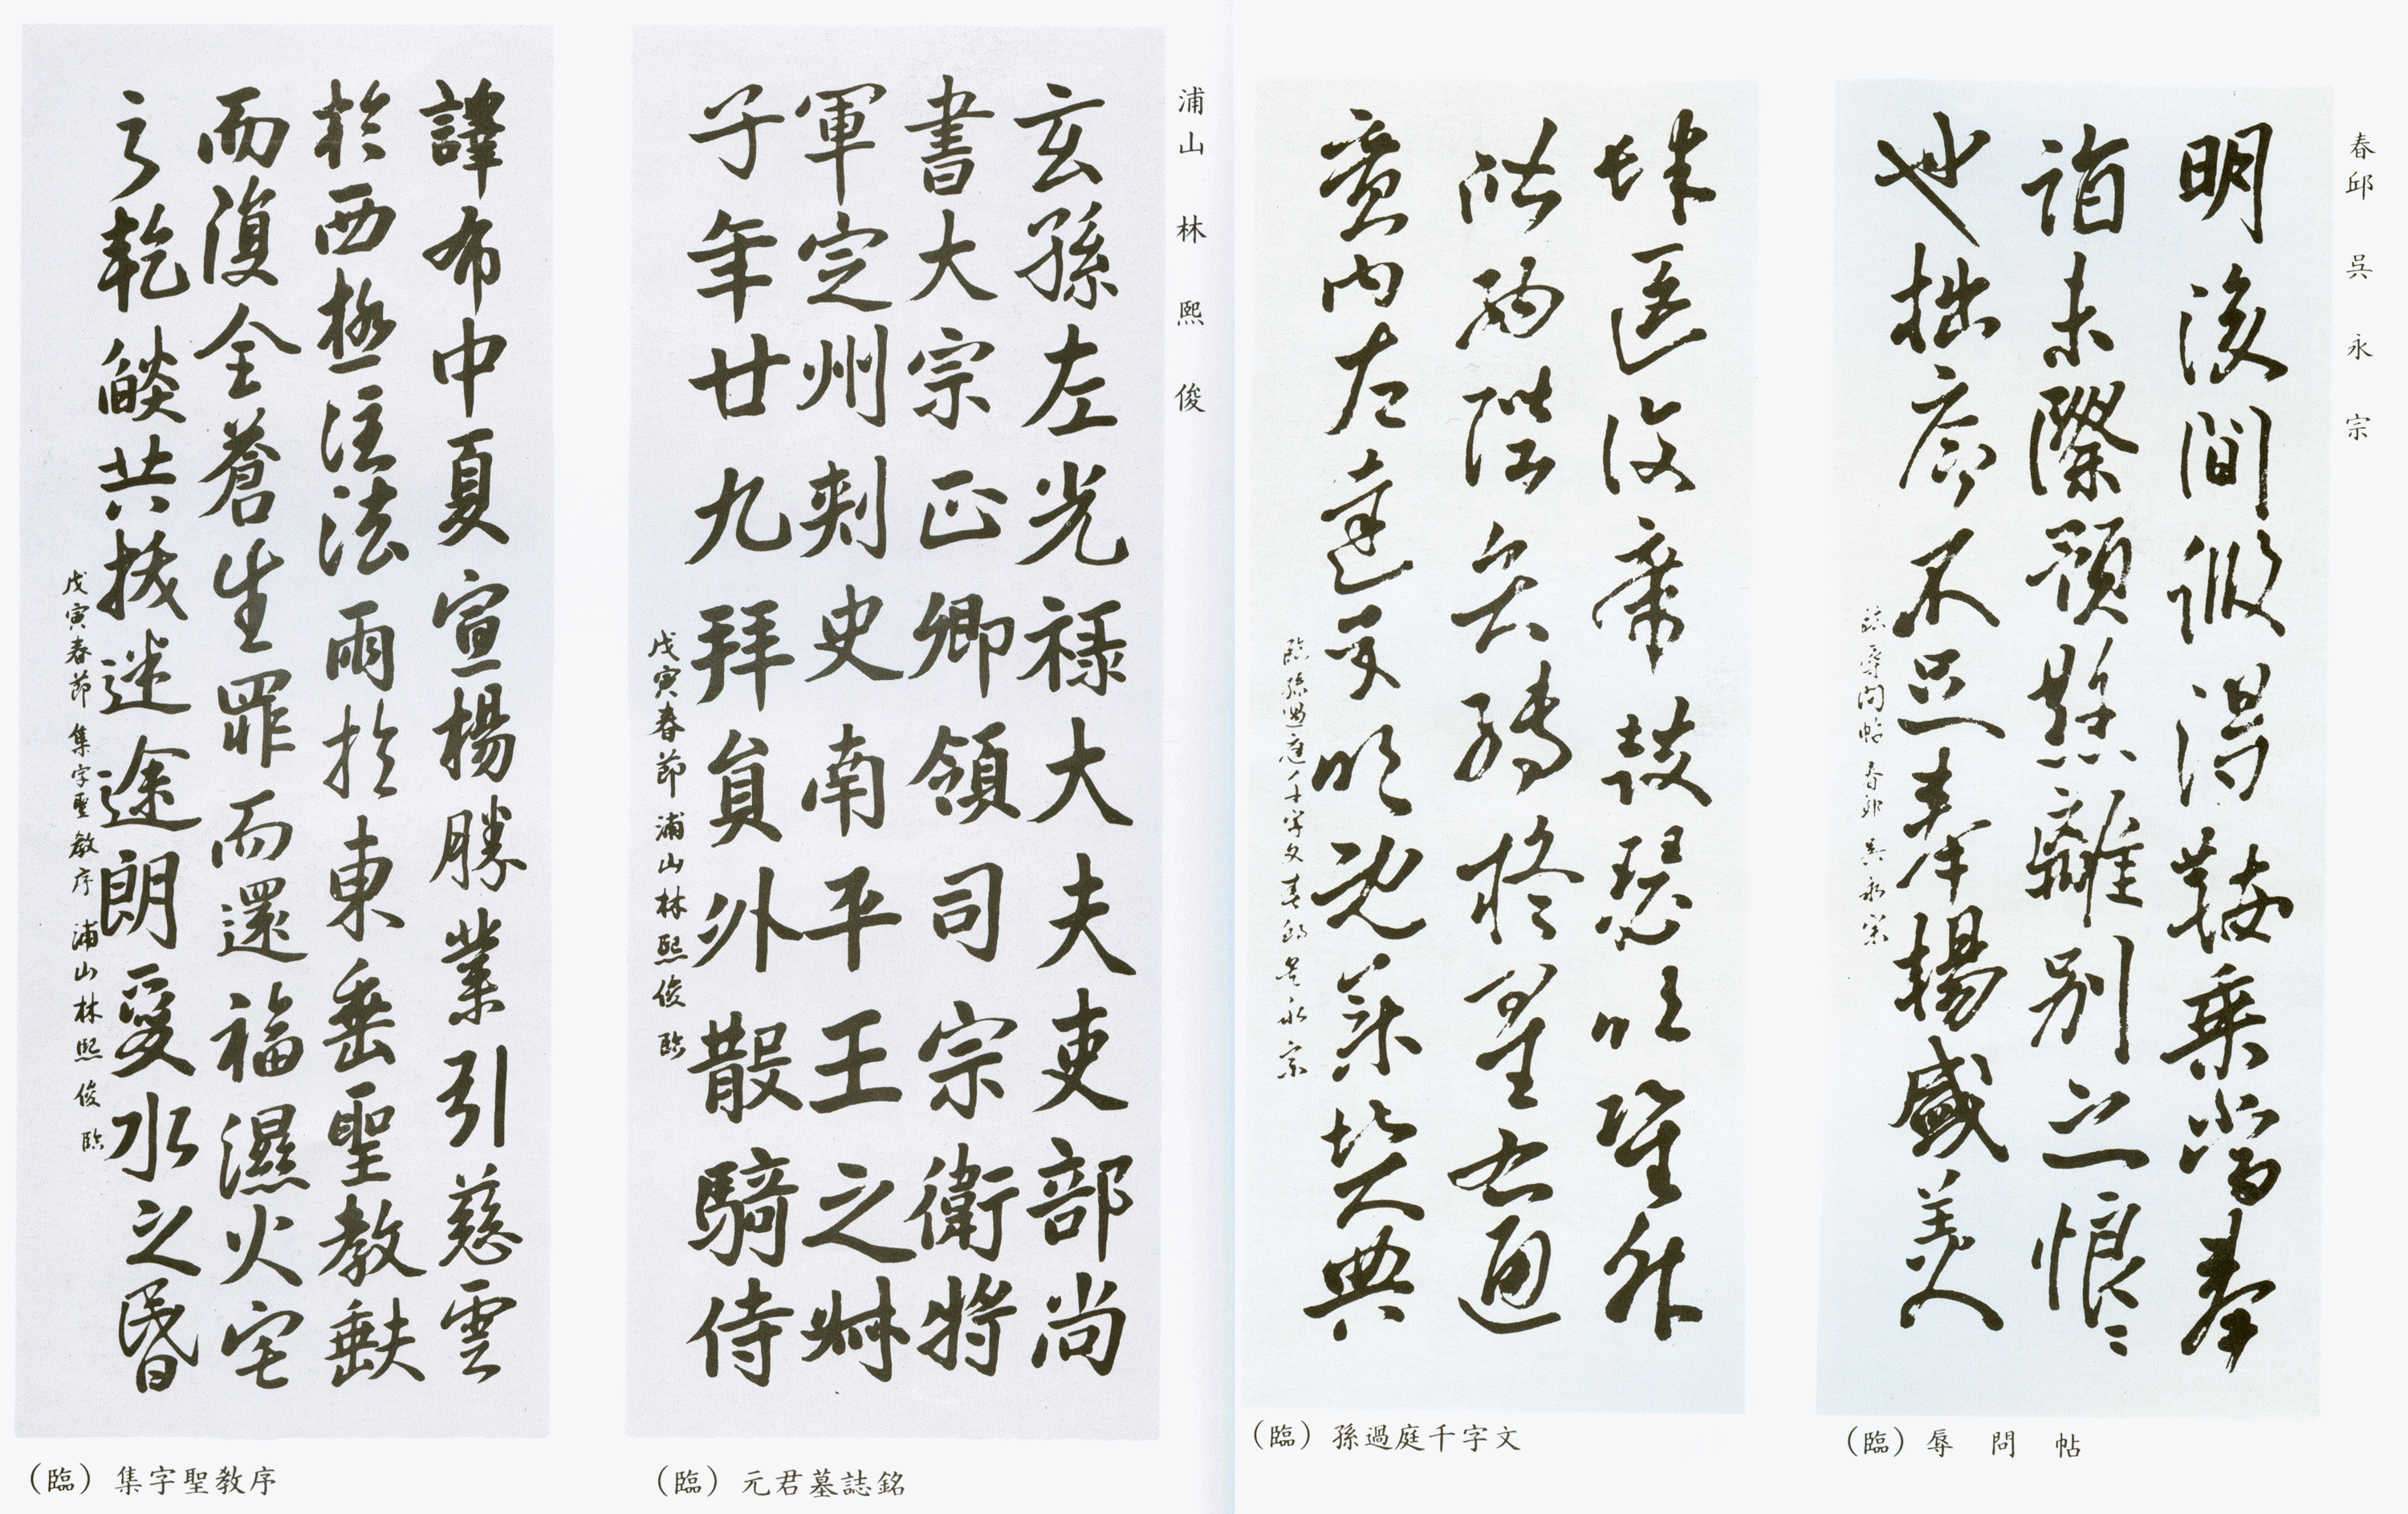 春邱 吳永宗
明後間假得鞍乘當奉
詣未際預愁離別之恨〻
也拙序不足奉揚盛美人
臨辱問帖 春邱 吳永宗
(臨) 辱問帖
肆筵設席鼓瑟吹笙升
階納陛弁轉疑星右通
廣內左達承明既集墳典
臨孫過庭千字文 春邱 吳永宗
(臨) 孫過庭千字文
浦山 林熙俊
玄孫左光祿大夫吏部尚
書大宗正卿領司宗衛將
軍定州刺史南平王之叔
子年廿九拜員外散騎侍
戊寅春節 浦山林熙俊 臨
(臨) 元君墓誌銘
譯布中夏宣揚勝業引慈雲
於西極注法雨於東垂聖教缺
而復全蒼生罪而還福濕火宅
之乾燄共拔迷途朗愛水之昏
戊寅春節 集字聖教序 浦山林熙俊 臨
(臨) 集字聖教序